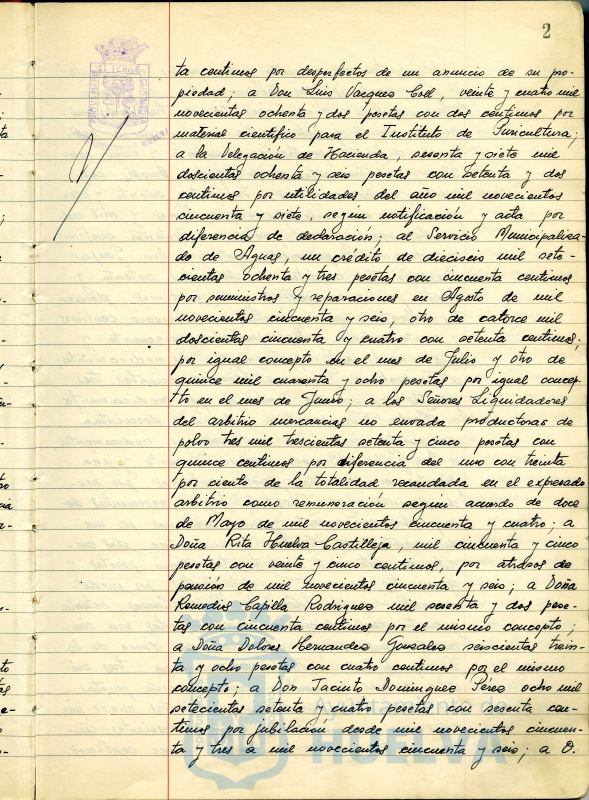 2
ta centimos por desperfectos de un anuncio de su pro-
piedad; a Don Luis Vazquez Coll, veinte y cuatro mil
novecientas ochenta y dos pesetas con dos centimos por
material cientifico para el Instituto de Puricultura;
a la Delegación de Hacienda, sesenta y siete mil
doscientas ochenta y seis pesetas con setenta y dos
centimos por utilidades del año mil novecientos
cincuenta y siete, segun notificación y acta por
diferencia de declaración; al Servicio Municipaliza-
do de Aguas, un crédito de dieciseis mil sete-
cientas ochenta y tres pesetas con cincuenta centimos
por suministros y reparaciones en Agosto de mil
novecientos cincuenta y seis, otro de catorce mil
doscientas cincuenta y cuatro con setenta centimos,
por igual concepto en el mes de Julio y otro de
quince mil cuarenta y ocho pesetas por igual concep-
to en el mes de Junio; a los Señores Liquidadores
del arbitrio mercancias no envasada productoras de
polvo tres mil trescientas setenta y cinco pesetas con
quince centimos por diferencia del uno con treinta
por ciento de la totalidad recaudada en el expresado
arbitrio como remuneración segun acuerdo de doce
de Mayo de mil novecientos cincuenta y cuatro; a
Doña Rita Huelva Castilleja, mil cincuenta y cinco
pesetas con veinte y cinco centimos, por atrasos de
pensión de mil novecientos cincuenta y seis; a Doña
Remedios Capilla Rodriguez mil sesenta y dos pese-
tas con cincuenta centimos por el mismo concepto;
a Doña Dolores Hernandez Gonzalez seiscientas trein-
ta y ocho pesetas con cuatro centimos por el mismo
concepto; a Don Jacinto Dominguez Pérez ocho mil
setecientas setenta y cuatro pesetas con sesenta cen-
timos por jubilación desde mil novecientos cincuen-
ta y tres a mil novecientos cincuenta y seis; a D.
HUELVA